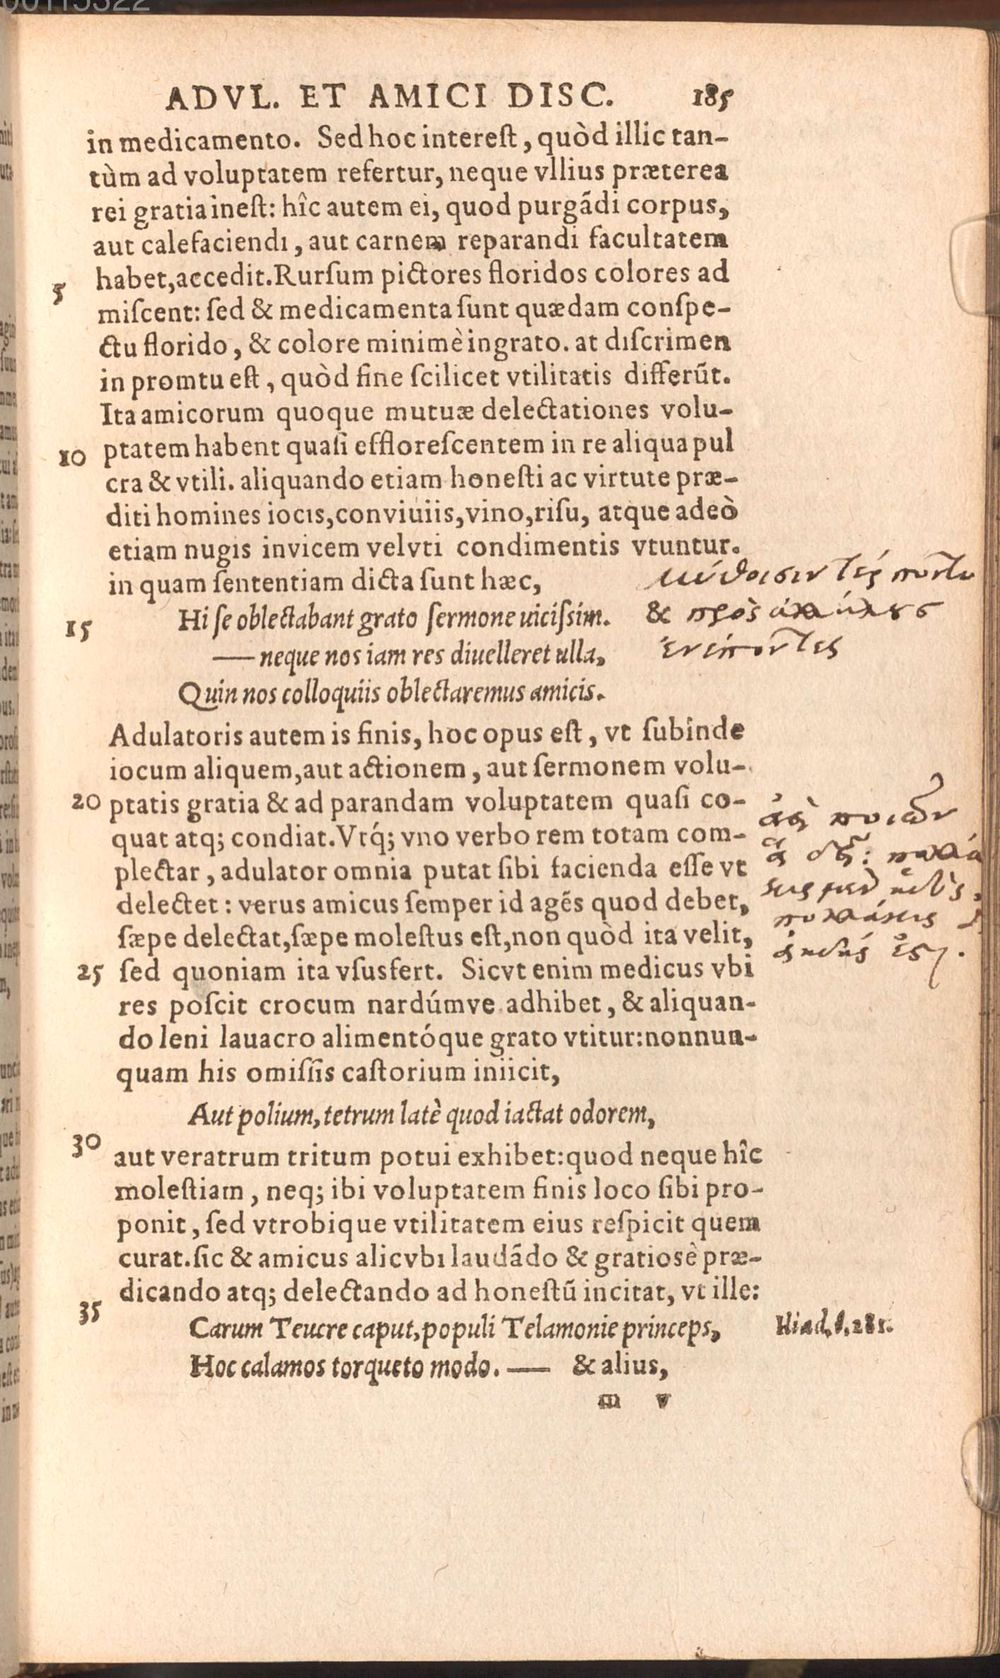 ADVL. ET AMICI DISC. 185
in medicamento. Sed hoc interest, quòd illic tan-
tùm ad voluptatem refertur, neque vllius præterea
rei gratia inest: hîc autem ei, quod purgãdi corpus,
aut calefaciendi, aut carnem reparandi facultatem
5 habet, accedit. Rursum pictores floridos colores ad
miscent: sed & medicamenta sunt quædam conspe-
ctu florido, & colore minimè ingrato. at discrimen
in promtu est, quòd fine scilicet vtilitatis differũt.
Ita amicorum quoque mutuæ delectationes volu-
10 ptatem habent quasi efflorescentem in re aliqua pul
cra & vtili. aliquando etiam honesti ac virtute præ-
diti homines iocis, conviuiis, vino, risu, atque adeò
etiam nugis invicem velvti condimentis vtuntur.
in quam sententiam dicta sunt hæc,
15 Hi se oblectabant grato sermone uicissim. &
— neque nos iam res diuelleret ulla,
Quin nos colloquiis oblectaremus amicis.
Adulatoris autem is finis, hoc opus est, vt subinde
iocum aliquem, aut actionem, aut sermonem volu-
20 ptatis gratia & ad parandam voluptatem quasi co-
quat atq; condiat. Vtq́; vno verbo rem totam com-
plectar, adulator omnia putat sibi facienda esse vt
delectet: verus amicus semper id agẽs quod debet,
sæpe delectat, sæpe molestus est, non quòd ita velit,
25 sed quoniam ita vsusfert. Sicvt enim medicus vbi
res poscit crocum nardúmve adhibet, & aliquan-
do leni lauacro alimentóque grato vtitur: nonnun-
quam his omissis castorium iniicit,
Aut polium, tetrum latè quod iactat odorem,
30 aut veratrum tritum potui exhibet: quod neque hîc
molestiam, neq; ibi voluptatem finis loco sibi pro-
ponit, sed vtrobique vtilitatem eius respicit quem
curat. sic & amicus alicvbi laudãdo & gratiosè præ-
dicando atq; delectando ad honestũ incitat, vt ille:
35 Carum Teucre caput, populi Telamonie princeps,
Hoc calamos torqueto modo. — & alius,
m v
μύθοισιν
πρὸς ἀλλήλους
ἐνέποντες
ποιῶν
Iliad. θ. 281.